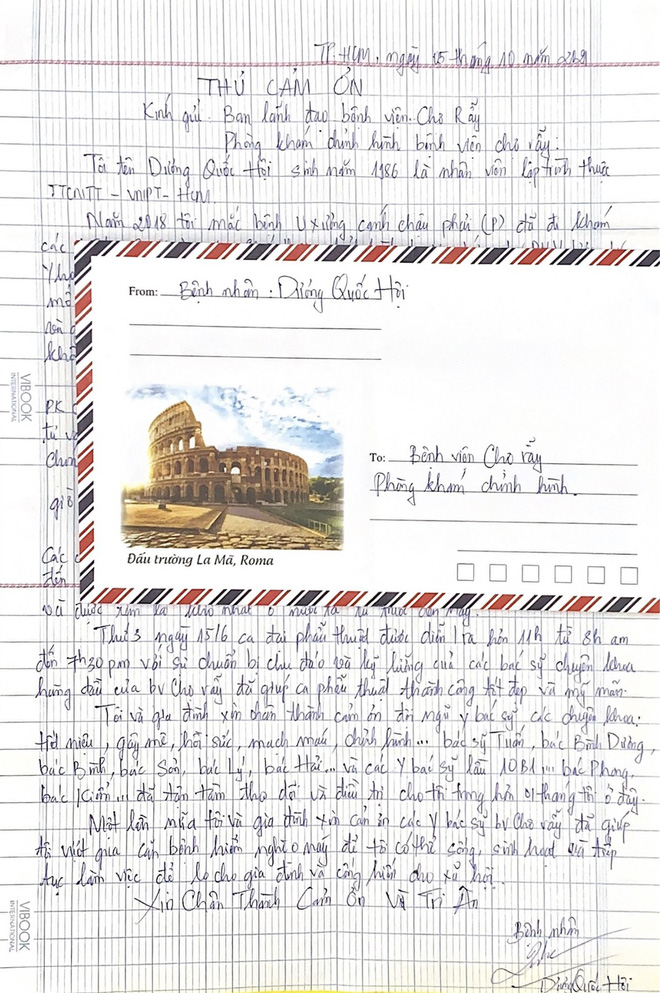 TP.HCM, ngày 15 tháng 10 năm
THƯ CẢM ƠN
Kính gửi: Ban lãnh đạo bệnh viện Chợ Rẫy
Phòng khám chỉnh hình bệnh viện chợ rẫy.
Tôi tên Dương Quốc Hội sinh năm 1986 là nhân viên lập trình thuộc
TTCNTT - VNPT - HCM.
Năm 2018 tôi mắc bệnh U xương cánh chậu phải (P) đã đi khám
các
mổ
khô
PK
tư v
Chợ
giờ
Các
đến
From: Bệnh nhân: Dương Quốc Hội
To: Bệnh viện Chợ rẫy
Phòng khám chỉnh hình.
Đấu trường La Mã, Roma
Thứ 3 ngày 15/6 ca đại phẫu thuật được diễn ra hơn 11h từ 8h am
đến 7h30 pm với sự chuẩn bị chu đáo và kỹ lưỡng của các bác sỹ chuyên khoa
hàng đầu của bv Chợ rẫy đã giúp ca phẫu thuật thành công tốt đẹp và mỹ mãn.
Tôi và gia đình xin chân thành cảm ơn đội ngũ y bác sỹ các chuyên khoa:
tiết niệu, gây mê, hồi sức, mạch máu, chỉnh hình... bác sỹ Tuấn, bác Bình Dương,
bác Bình, bác Sơn, bác Lý, bác Hải... và các Y bác sỹ lầu 10B1... bác Phong,
bác Kiểm... đã tận tâm theo dõi và điều trị cho tôi trong hơn 01 tháng tôi ở đây.
Một lần nữa tôi và gia đình xin cản ơn các Y bác sỹ bv Chợ rẫy đã giúp
tôi vượt qua căn bệnh hiểm nghèo này để tôi có thể sống, sinh hoạt và tiếp
tục làm việc để lo cho gia đình và cống hiến cho xã hội.
Xin Chân Thành Cảm Ơn Và Tri Ân
Bệnh nhân
Dương Quốc Hội
VIBOOK
INTERNATIONAL
VIBOOK
INTERNATIONAL